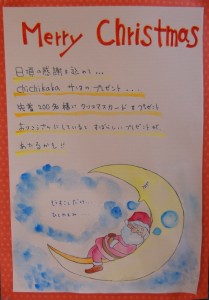 Merry Christmas
日頃の感謝を込めて...
chichikaka サンタの プレゼント...
先着200名様に クリスマスカードをプレゼント
おりこうさんにしていると すばらしい プレゼントが
あたるかも!!